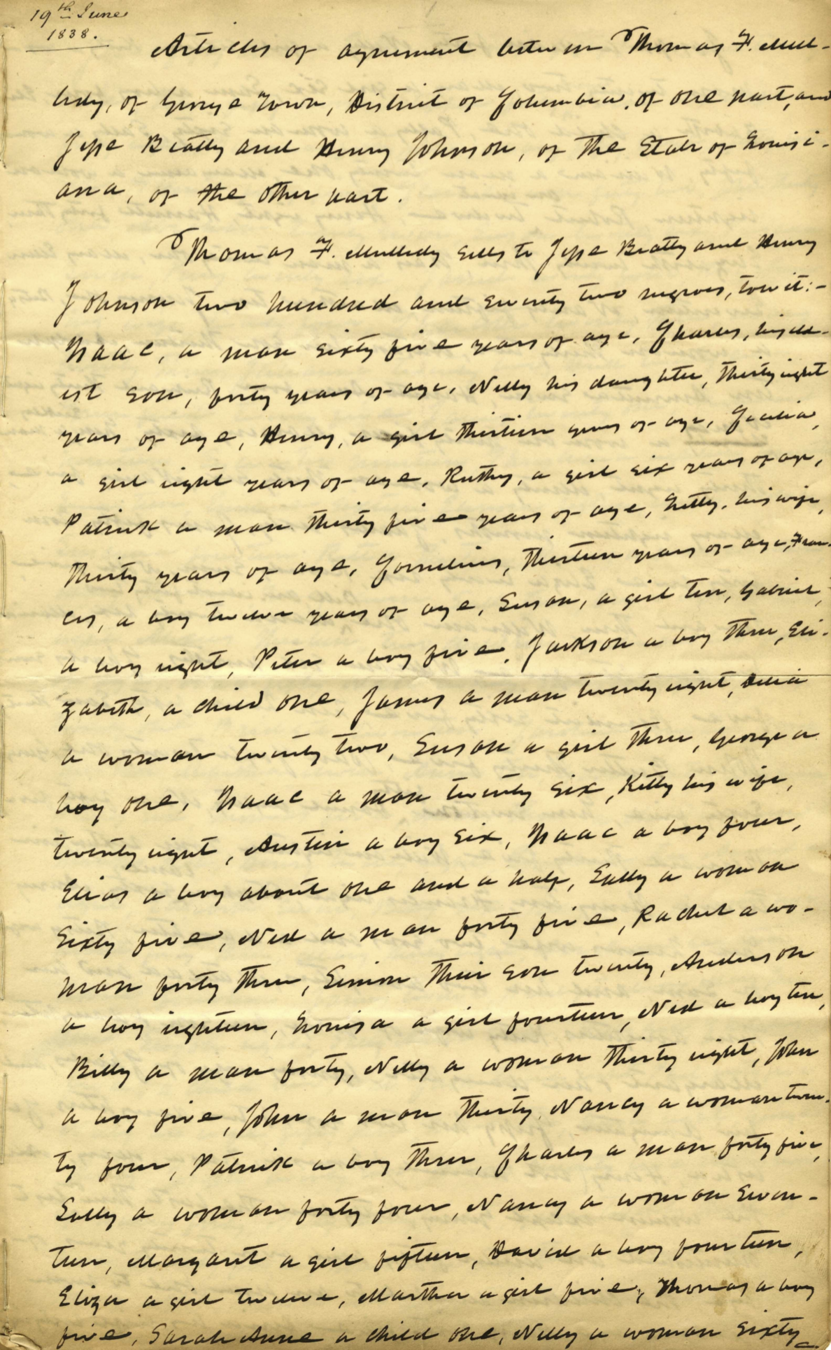 19th June
1838.
Articles of agreement between Thomas F. Mul-
ledy, of George Town, District of Columbia, of one part, and
Jesse Beatty and Henry Johnson, of the State of Louisi-
ana, of the other part.
Thomas F. Mulledy sells to Jesse Beatty and Henry
Johnson two hundred and seventy two negroes, to wit:-
Isaac, a man sixty five years of age, Charles, his eld-
est son, forty years of age, Nelly his daughter, thirty eight
years of age, Henny, a girl thirteen years of age, Cecilia,
a girl eight years of age, Ruthy, a girl six years of age,
Patrick a man thirty five years of age, Letty, his wife,
thirty years of age, Cornelius, thirteen years of age, Fran-
cis, a boy twelve years of age, Susan, a girl ten, Gabriel,
a boy eight, Peter a boy five, Jackson a boy three, Eli-
zabeth, a child one, James a man twenty eight, Delia
a woman twenty two, Susan a girl three, George a
boy one, Isaac a man twenty six, Kitty his wife,
twenty eight, Austin a boy six, Isaac a boy four,
Elias a boy about one and a half, Sally a woman
Sixty five, Ned a man forty five, Rachel a wo-
man forty three, Simon their son twenty, Anderson
a boy eighteen, Louisa a girl fourteen, Ned a boy ten,
Billy a man forty, Nelly a woman thirty eight, John
a boy five, John a man thirty, Nancy a woman twen-
ty four, Patrick a boy three, Charles a man forty five,
Sally a woman forty four, Nancy a woman Seven-
teen, Margaret a girl fifteen, David a boy fourteen,
Eliza a girl twelve, Martha a girl five, Thomas a boy
five, Sarah Anne a child one, Nelly a woman Sixty